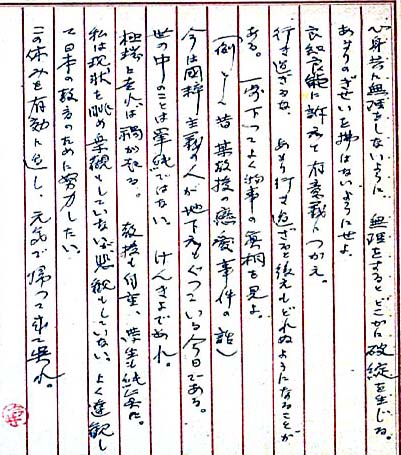 心身共に無理をしないように 無理をするとどこかに破綻を生じる。
あまりのぎせいを拂はないようにせよ。
良知良能に訴えて有意義につかえ。
行き過ぎるな、あまり行き過ぎると後えもどれぬようになることが
ある。一寸下つてよく物事の真相を見よ。
(例として昔 某教授の恋愛事件の話)
今は國粋主義の人が地下えもぐつている今日である。
世の中のことは單純ではない けんきよであれ。
極端と走れば禍が起る。 教授も自重、學生も純眞に。
私は現状を眺め樂観もしていないが悲観もしていない、よく達観し
て日本の教育のために努力したい。
この休みを有効に過し、元気で帰つて来て呉れ。